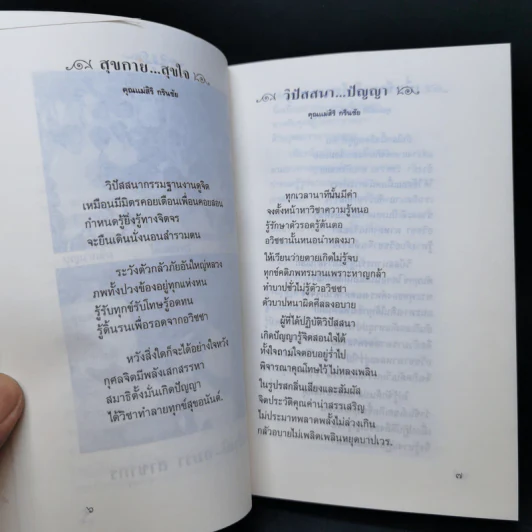 สุขกาย...สุขใจ
คุณแม่สิริ กรินชัย
วิปัสสนากรรมฐานงานดูจิต
เหมือนมีมิตรคอยเตือนเพื่อนคอยสอน
กำหนดรู้ยิ่งรู้ทางจิตจร
จะยืนเดินนั่งนอนสำรวมตน
ระวังตัวกลัวภัยอันใหญ่หลวง
ภพทั้งปวงข้องอยู่ทุกแห่งหน
รู้รับทุกข์รับโทษรู้อดทน
รู้ดิ้นรนเพื่อรอดจากอวิชชา
หวังสิ่งใดก็จะได้อย่างใจหวัง
กุศลจิตมีพลังเสกสรรหา
สมาธิตั้งมั่นเกิดปัญญา
ได้วิชาทำลายทุกข์สุขอนันต์.
๖
วิปัสสนา...ปัญญา
คุณแม่สิริ กรินชัย
ทุกเวลานาทีนั้นมีค่า
จงตั้งหน้าหาวิชาความรู้หนอ
รู้รักษาตัวรอดรู้ต้นตอ
อวิชชานั้นหนอนำหลงมา
ให้เวียนว่ายตายเกิดไม่รู้จบ
ทุกข์คดีภพทรมานเพราะหาญกล้า
ทำบาปชั่วไม่รู้ตัวอวิชชา
ตัวบาปหนาผิดศีลลงอบาย
ผู้ที่ได้ปฏิบัติวิปัสสนา
เกิดปัญญารู้จิตสอนใจได้
ทั้งใจถามใจตอบอยู่ร่ำไป
พิจารณาคุณโทษไว้ไม่หลงเพลิน
ในรูปรสกลิ่นเสียงและสัมผัส
จิตประวัติคุณค่าน่าสรรเสริญ
ไม่ประมาทพลาดพลั้งไม่ล่วงเกิน
กลัวอบายไม่เพลิดเพลินหยุดบาปเวร.
๗